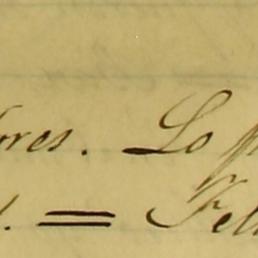 ores. Lo
. = Fel